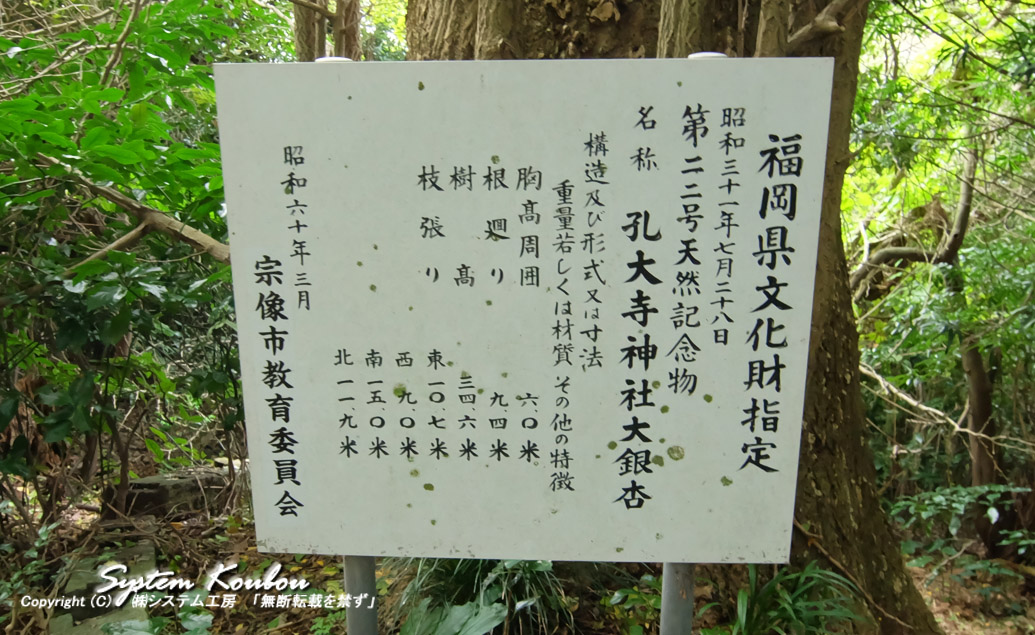 福岡県文化財指定
昭和三十一年七月二十八日
第二二号天然記念物
名称 孔大寺神社大銀杏
構造及び形式又は寸法
重量若しくは材質その他の特徴
胸高周囲 六.〇米
根廻り 九.四米
樹高 三四.六米
枝張り 東一〇.七米
西 九.〇米
南一五.〇米
北一一.九米
昭和六十年三月
宗像市教育委員会
System Koubou
Copyright (C) ㈱システム工房 「無断転載を禁ず」